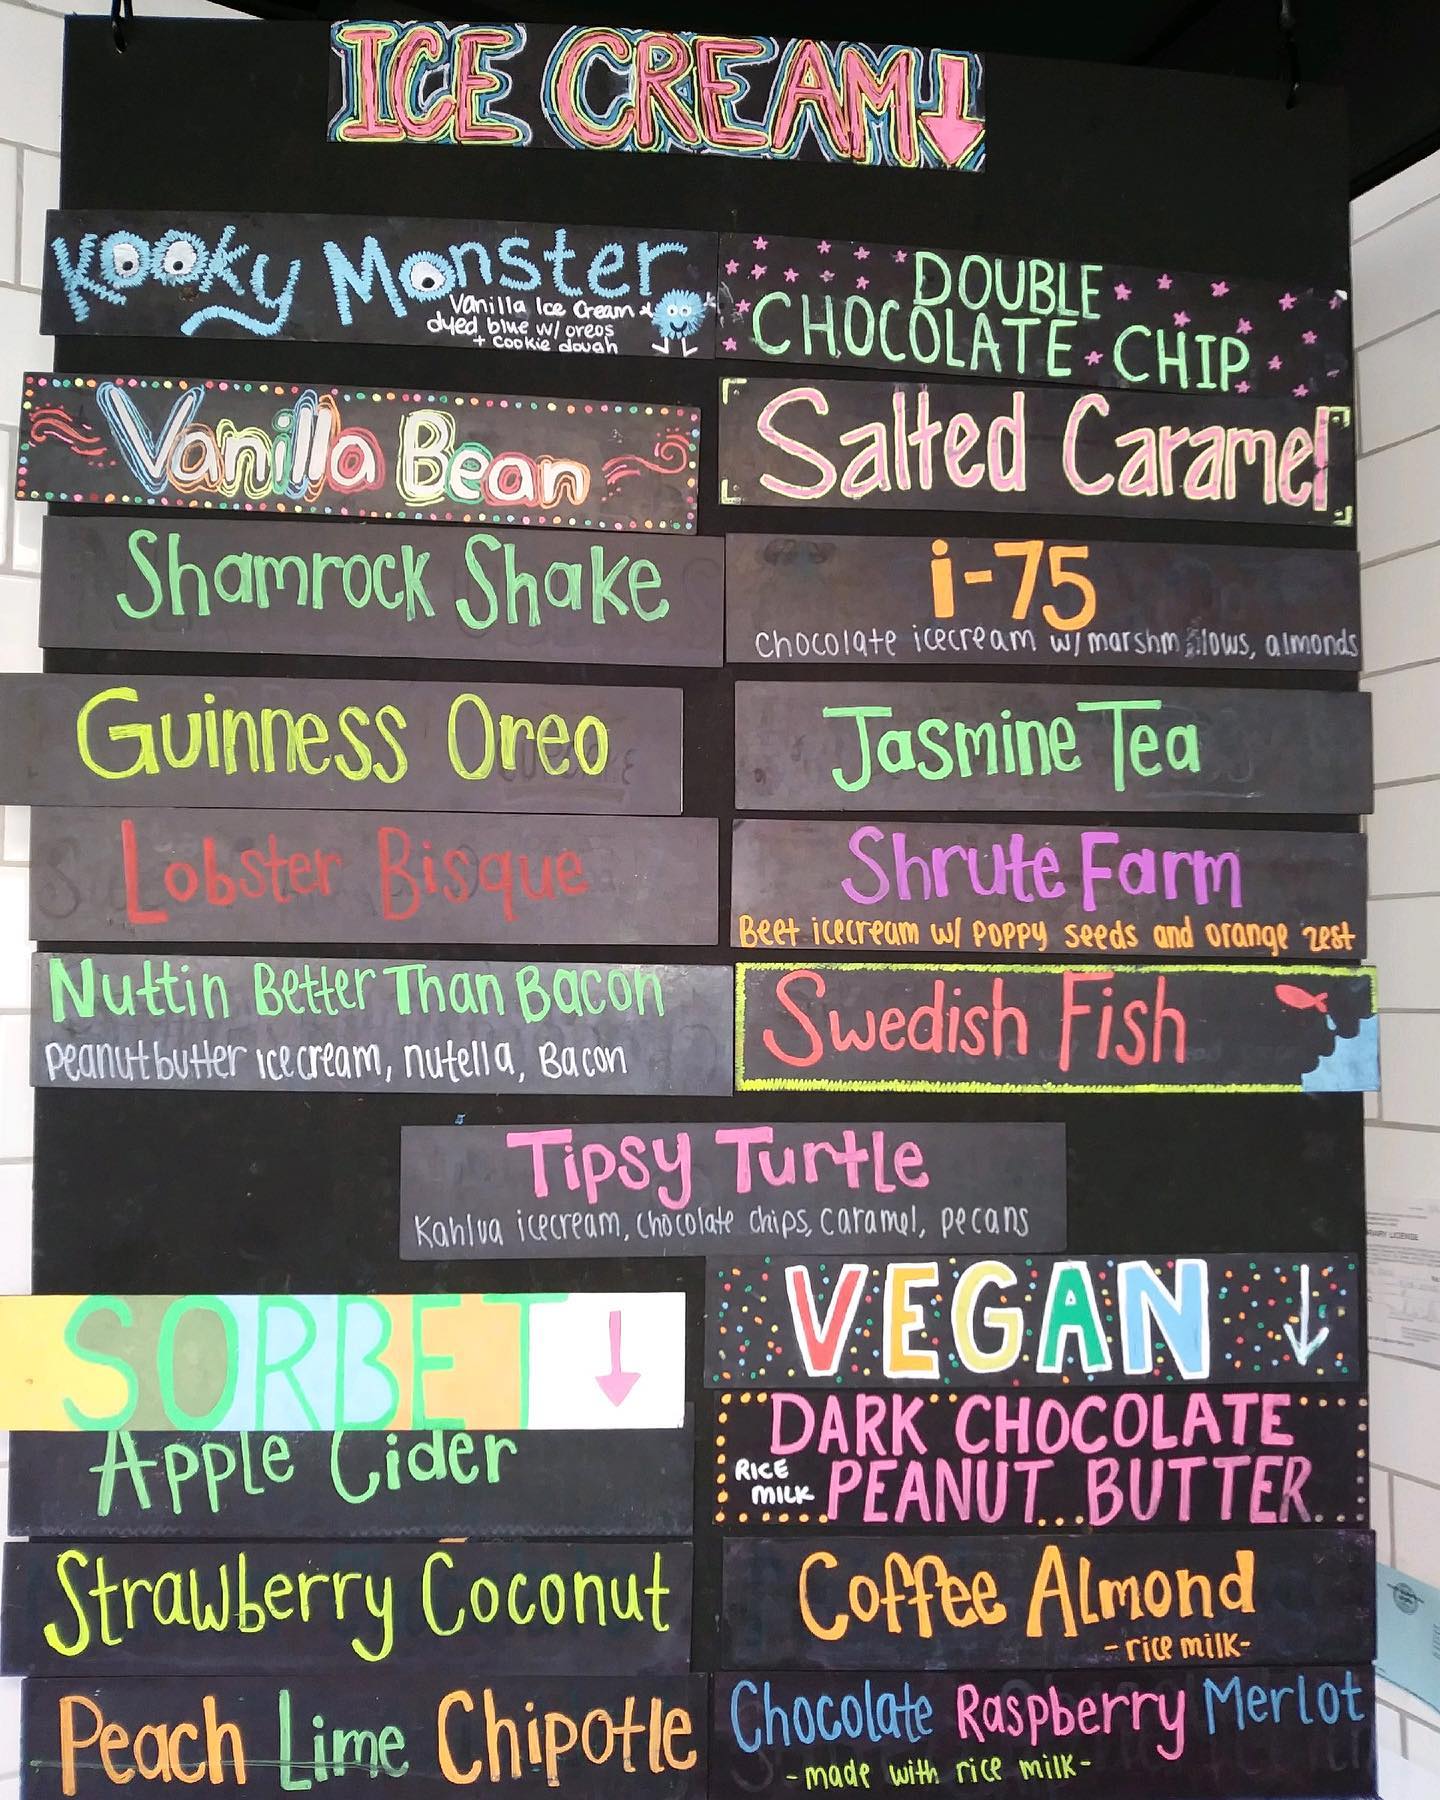 ICE CREAM
Kooky Monster
Vanilla Ice Cream
dyed blue w/ oreos
+ cookie dough
DOUBLE
CHOCOLATE CHIP
Vanilla Bean
Salted Caramel
Shamrock Shake
i-75
chocolate icecream w/ almonds
Guinness Oreo
Jasmine Tea
Lobster Bisque
Shrute Farm
Beet icecream w/ poppy seeds and orange zest
Nuttin Better Than Bacon
Peanutbutter icecream, nutella, Bacon
Swedish Fish
Tipsy Turtle
Kahlua icecream, chocolate chips, caramel, pecans
SORBET
Apple Cider
Strawberry Coconut
Peach Lime Chipotle
VEGAN
DARK CHOCOLATE
RICE
MILK
PEANUT BUTTER
Coffee Almond
-rice milk-
Chocolate Raspberry Merlot
-made with rice milk-